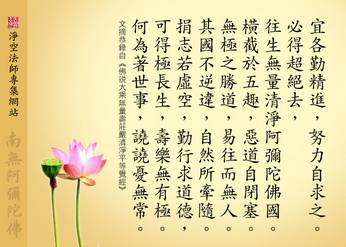 宜各勤精進，努力自求之。
必得超絕去，
往生無量清淨阿彌陀佛國。
橫截於五趣，惡道自閉塞。
無極之勝道，易往而無人。
其國不逆違，自然所牽隨。
捐志若虛空，勤行求道德，
可得極長生，壽樂無有極。
何為著世事，譊譊憂無常。
文摘恭錄自《佛說大乘無量壽莊嚴清淨平等覺經》
淨空法師專集網站
南無阿彌陀佛